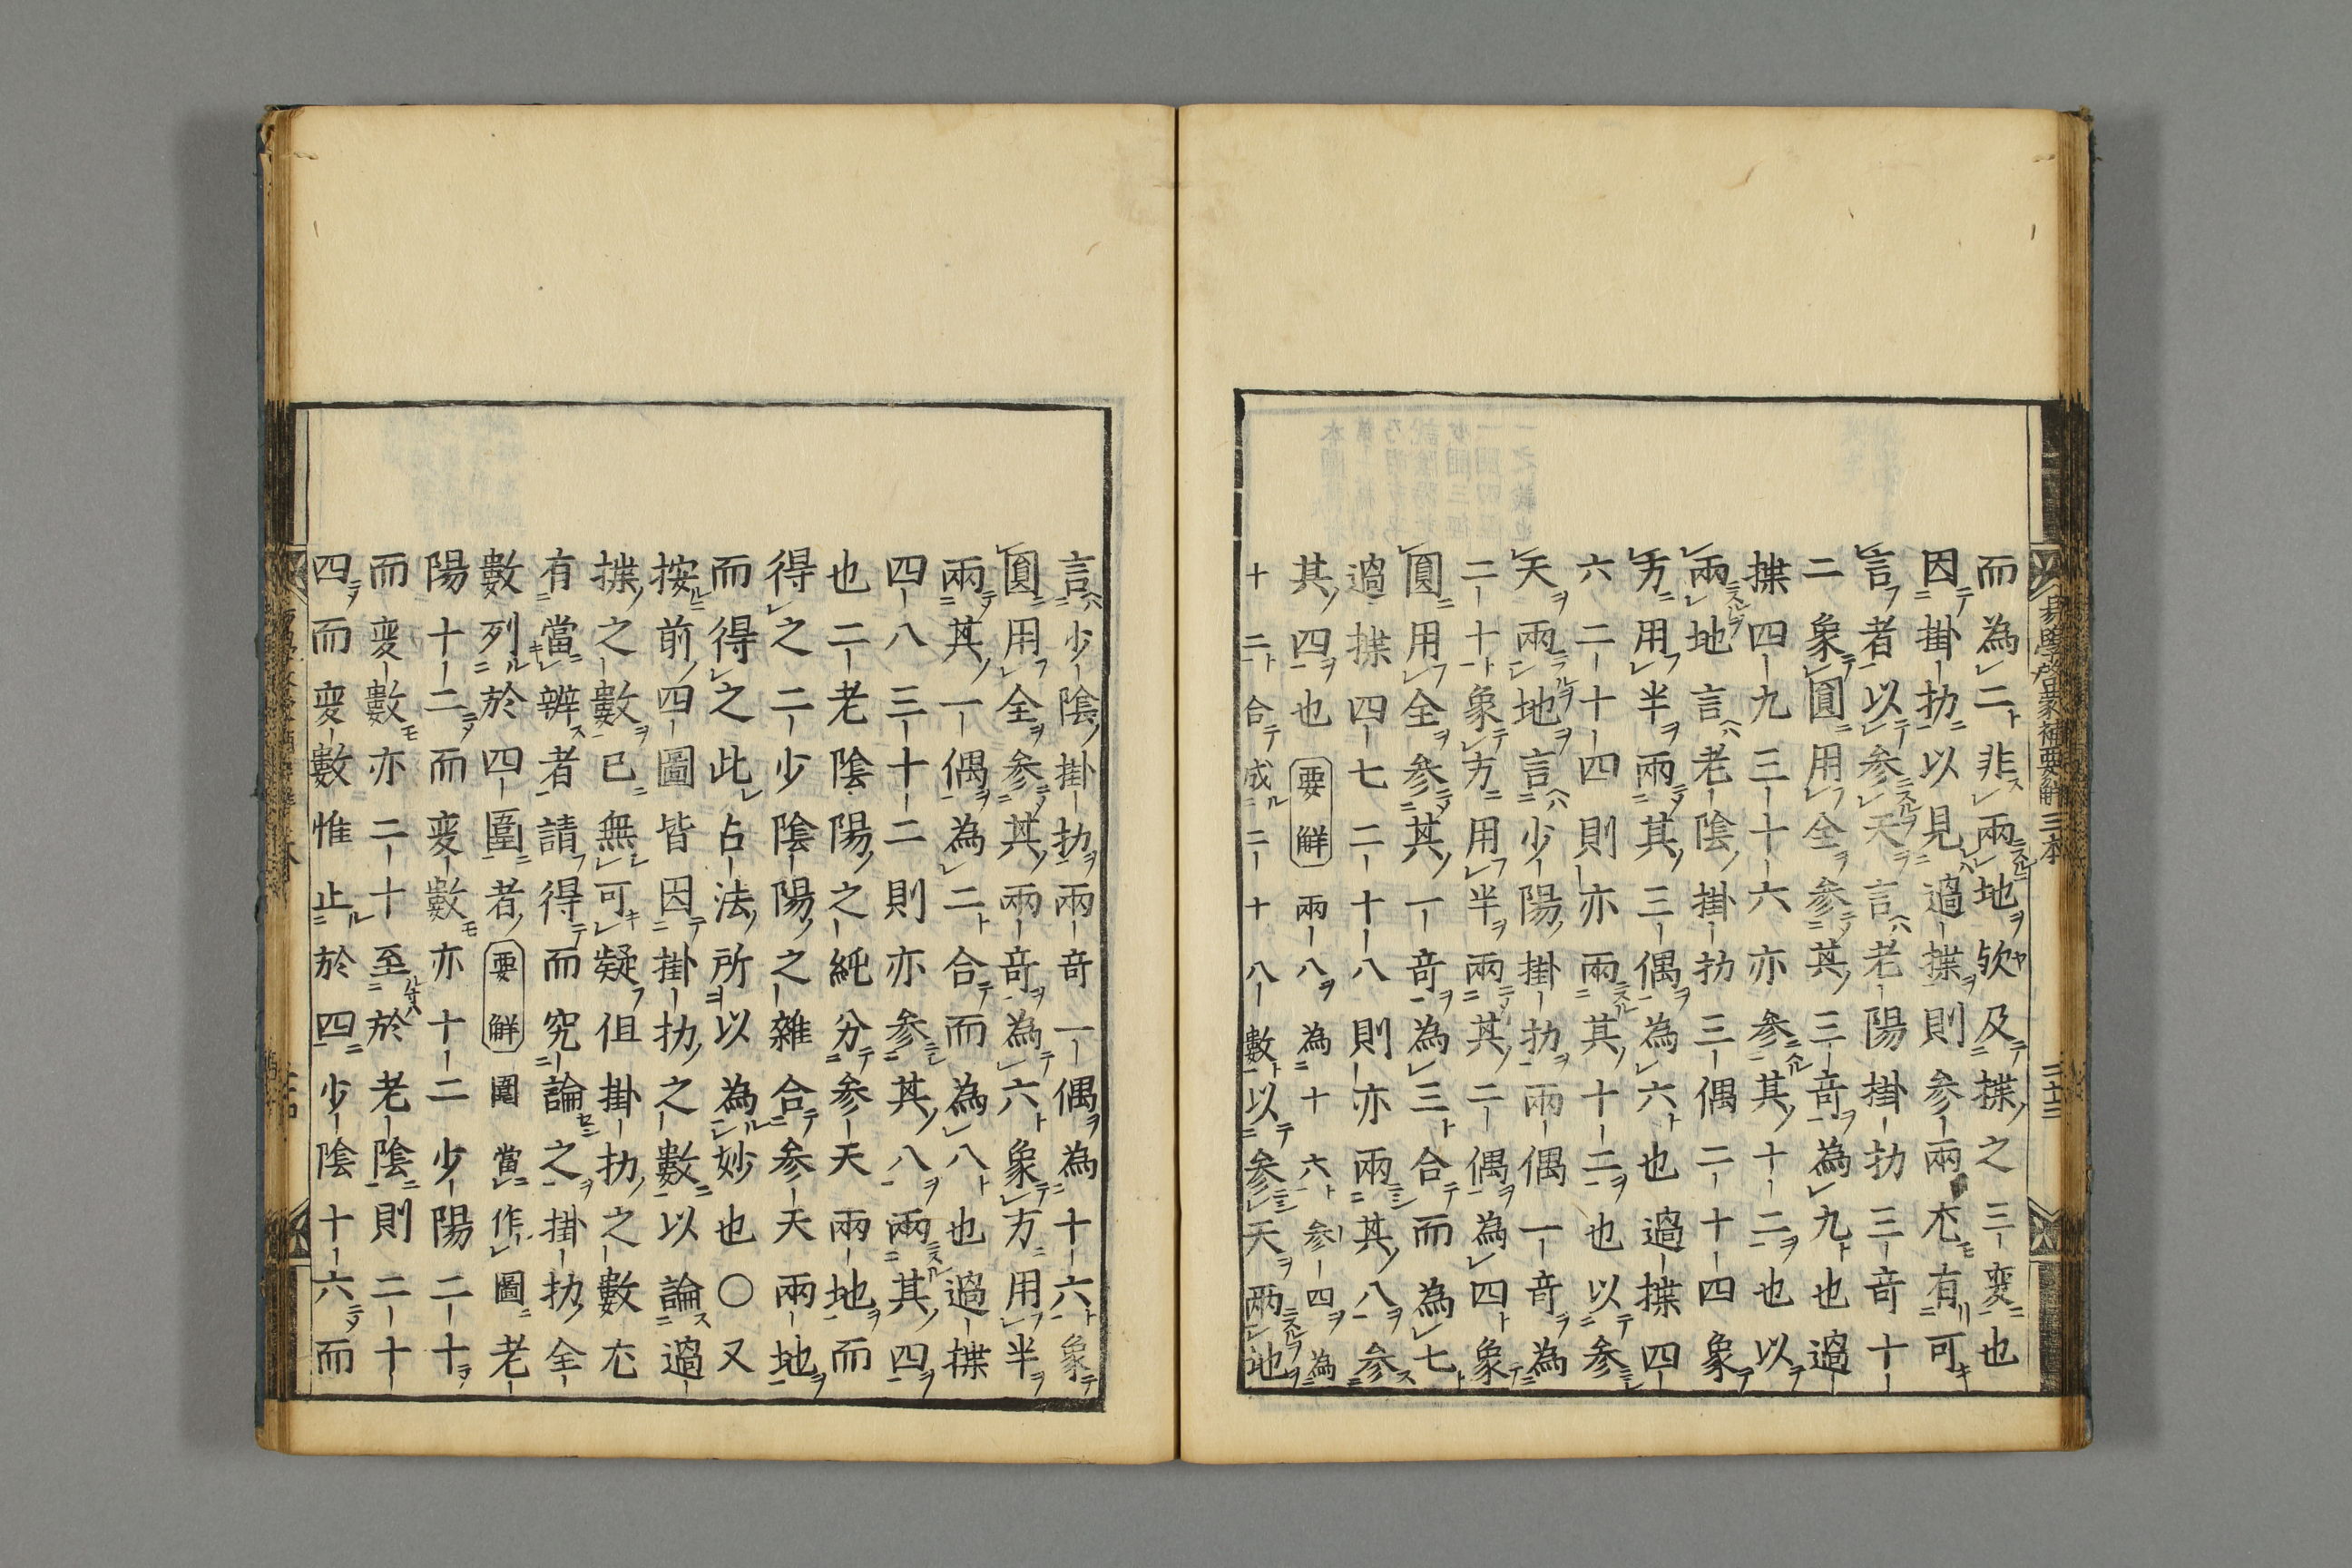 易學啓蒙補要解 三本 二十三
而為二非兩地欤及揲之三変也
因掛扐以見過揲則参兩尤有可
言者以参天言老陽掛扐三竒十
二象圓用全参其三竒為九也過
揲四九三十六亦参其十二也以
兩地言老陰掛扐三偶二十四象
方用半兩其三偶為六也過揲四
六二十四則亦兩其十二也以参
天兩地言少陽掛扐兩偶一竒為
二十象方用半兩其二偶為四象
圓用全参其一竒為三合而為七
過揲四七二十八則亦兩其八参
其四也 要解 兩八為十六参四為
十二合成二十八數以参天兩地
言少陰掛扐兩竒一偶為十六象
圓用全参其兩竒為六象方用半
兩其一偶為二合而為八也過揲
四八三十二則亦参其八兩其四
也二老陰陽之純分参天兩地而
得之二少陰陽之雜合参天兩地
而得之此占法所以為妙也〇又
按前四圖皆因掛扐之數以論過
揲之數已無可疑但掛扐之數尤
有當辨者請得而究論之掛扐全
數列於四圍者 要解 圍當作圖老
陽十二而変數亦十二少陽二十
而変數亦二十至於老陰則二十
四而変數惟止於四少陰十六而